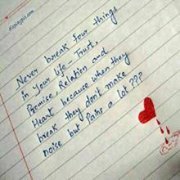 Never break four things
in your life - Trust,
Promise, Relation and
Heart because when they
break they don't make
noise but Pains a lot???